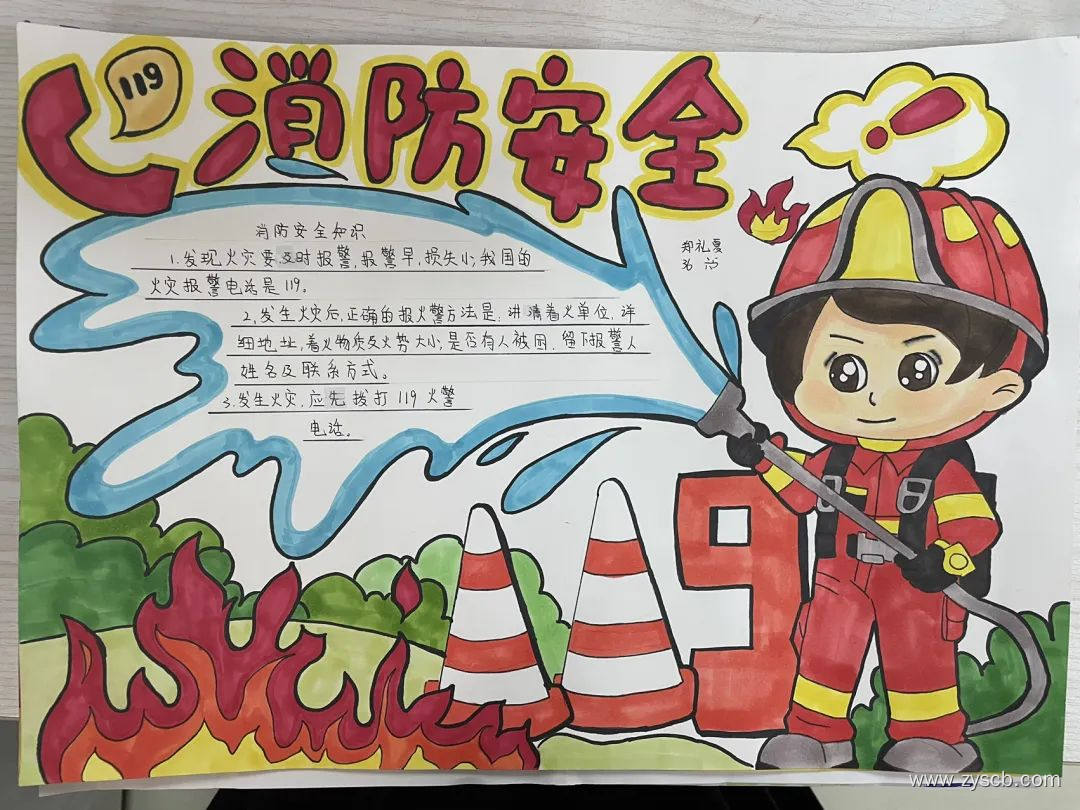 119
消防安全
!
郑礼夏
消防安全知识
1.发现火灾要及时报警,报警早,损失小;我国的
火灾报警电话是119。
2.发生火灾后,正确的报火警方法是:讲清着火单位,详
细地址,着火物质及火势大小;是否有人被困,留下报警人
姓名及联系方式。
3.发生火灾,应先拨打119火警
电话。
119
www.zyscb.com